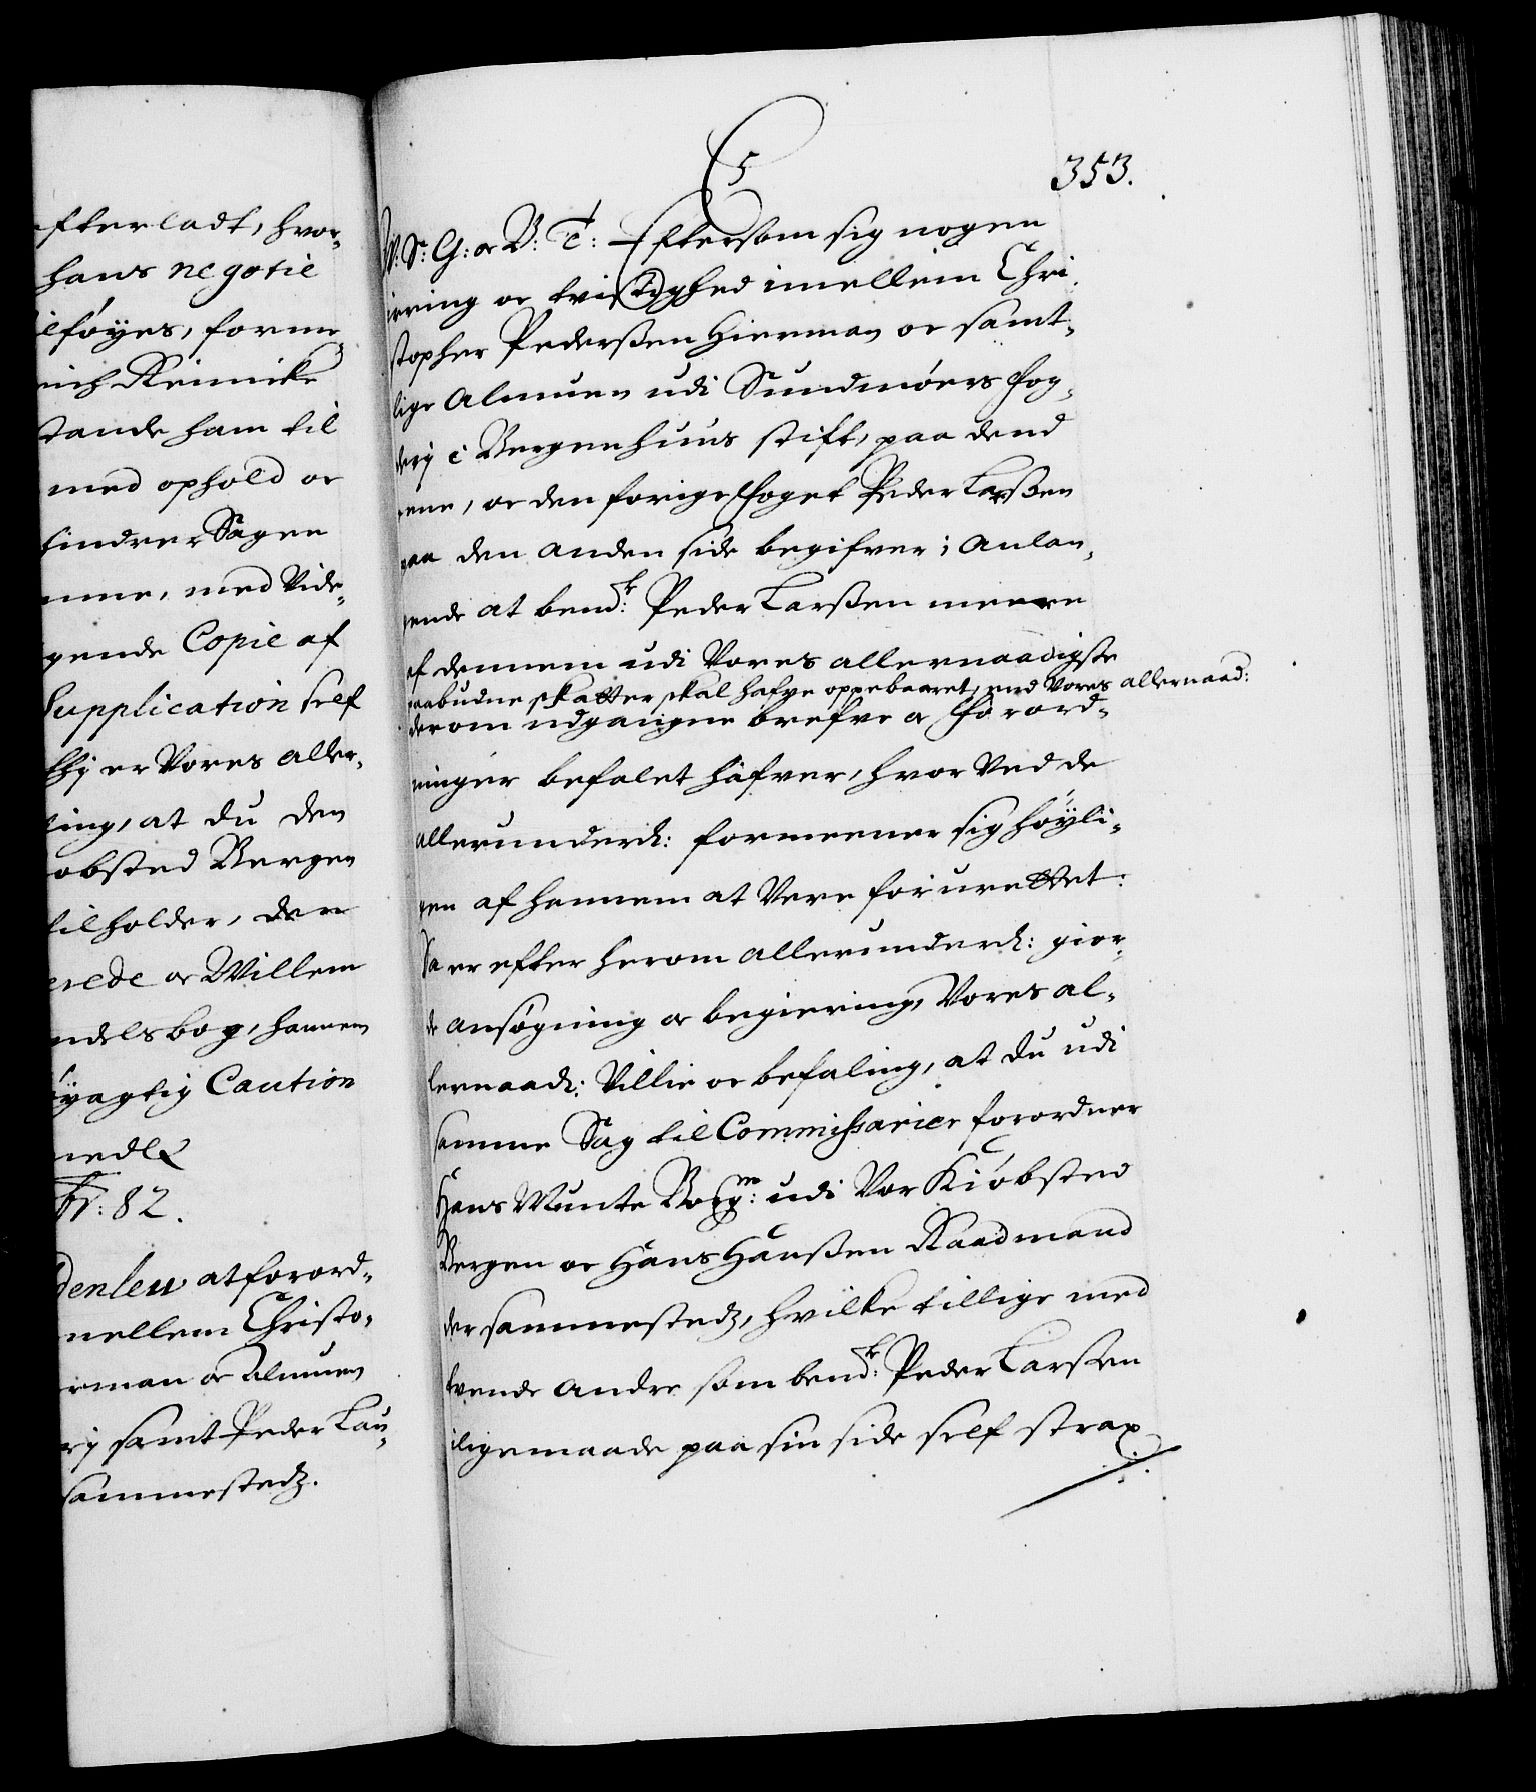 efterladt, hvor-
hans negotie
ilføyes, forme-
rich Reinicke
tande ham til
med ophold oc
hindrer Sagen
mme, med Vide-
gende Copie af
Supplication self
thj er Vores aller-
ling, at du den
obsted Bergen
tilholder, der
rede oc Willem
ndelsbog, hannem
øyagtig Caution
medlz
br: 82.
denleu at forord-
mellem Christo-
rman oc Almuen
rj samt Peder Lau-
sammestedz.
353.
5
W. S: G: oc V: T: Eftersom sig nogen
irring oc tvistighed imellem Chri-
stopher Pederssen Hierman oc samt-
lige Almuen udi Sundmöers fog-
derj i Bergenhuus stift, paa dend
eene, oc den forige foget Peder Larssen
paa den anden side begifver; Anlan-
gende at bemd.te Peder Larssen meere
af dennem udi Vores allernaadigste
paabudne skatter skal hafve oppebaaret, end Vores allernaad:
derom udgangne brefve oc forord-
ninger befalet hafver, hvor Ved de
allerunderd: formeener sig høyli-
gen af hannem at Vere foruretttet:
Da er efter herom allerunderd: gior-
de ansøgning oc begiering, Vores al-
lernaad: Villie oc befaling, at du udi
samme Sag til Commissarier forordner
Hans Munte Borgm: udi Vor Kiøbsted
Bergen oc Hans Hanssen Raadmand
dersammestedz, hvilke tillige med
tvende andre som bemd.te Peder Larssen
iligemaade paa sin side self strax